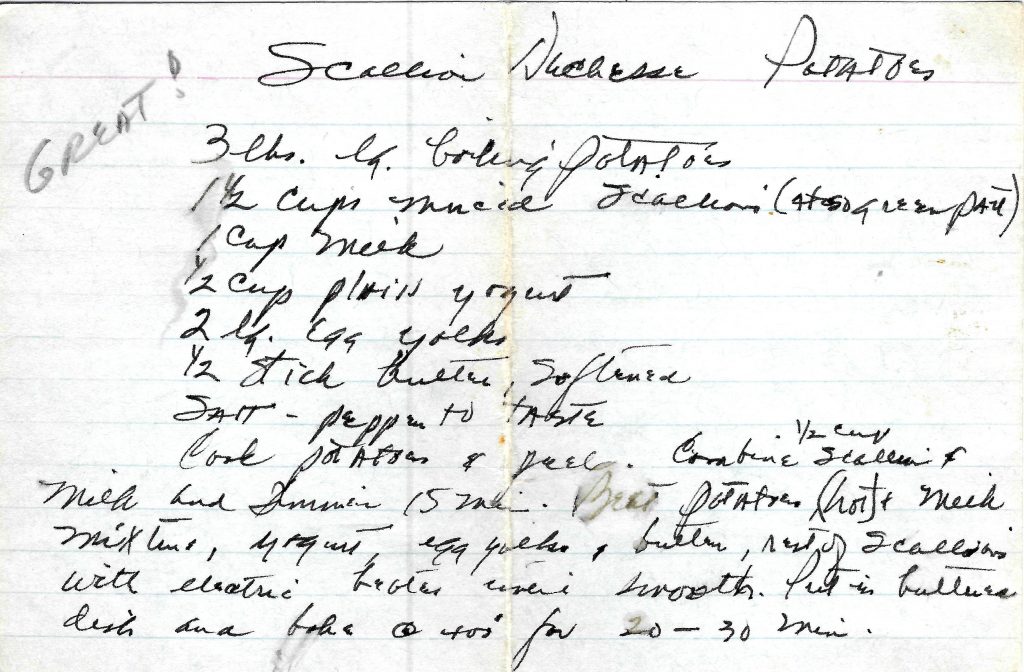 Scallion Duchesse Potatoes
GREAT!
3 lbs. lg. boiling potatoes
1 1/2 cups minced scallions (also green part)
1 cup milk
1/2 cup plain yogurt
2 lg. egg yolks
1/2 stick butter, softened
Salt - pepper to taste
Cook potatoes & peel. Combine 1/2 cup scallion &
milk and simmer 15 min. Beat potatoes (hot) & milk
mixture, yogurt, egg yolks, butter, rest of scallions
with electric beater until smooth. Put in buttered
dish and bake @ 400° for 20 - 30 min.